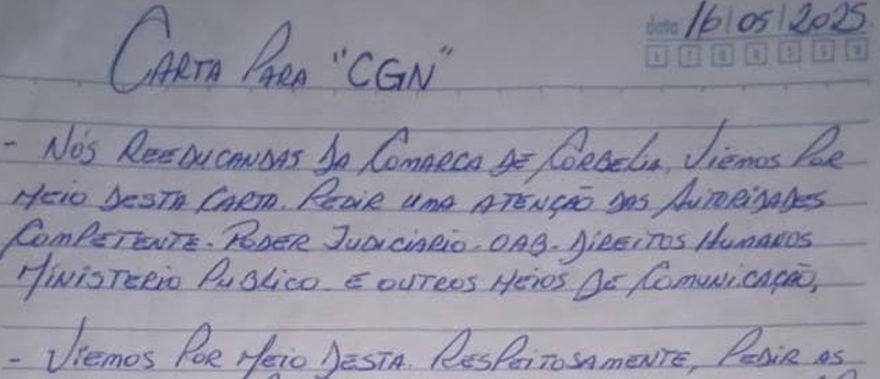 data 16/05/2025
D T Q Q S S D
CARTA PARA "CGN"
- NÓS REEDUCANDAS DA COMARCA DE CORBELIA, VIEMOS POR
MEIO DESTA CARTA. PEDIR UMA ATENÇÃO DAS AUTORIDADES
COMPETENTE. PODER JUDICIARIO. OAB. DIREITOS HUMANOS
MINISTERIO PUBLICO E OUTROS MEIOS DE COMUNICAÇÃO,
- VIEMOS POR MEIO DESTA. RESPEITOSAMENTE, PEDIR AS